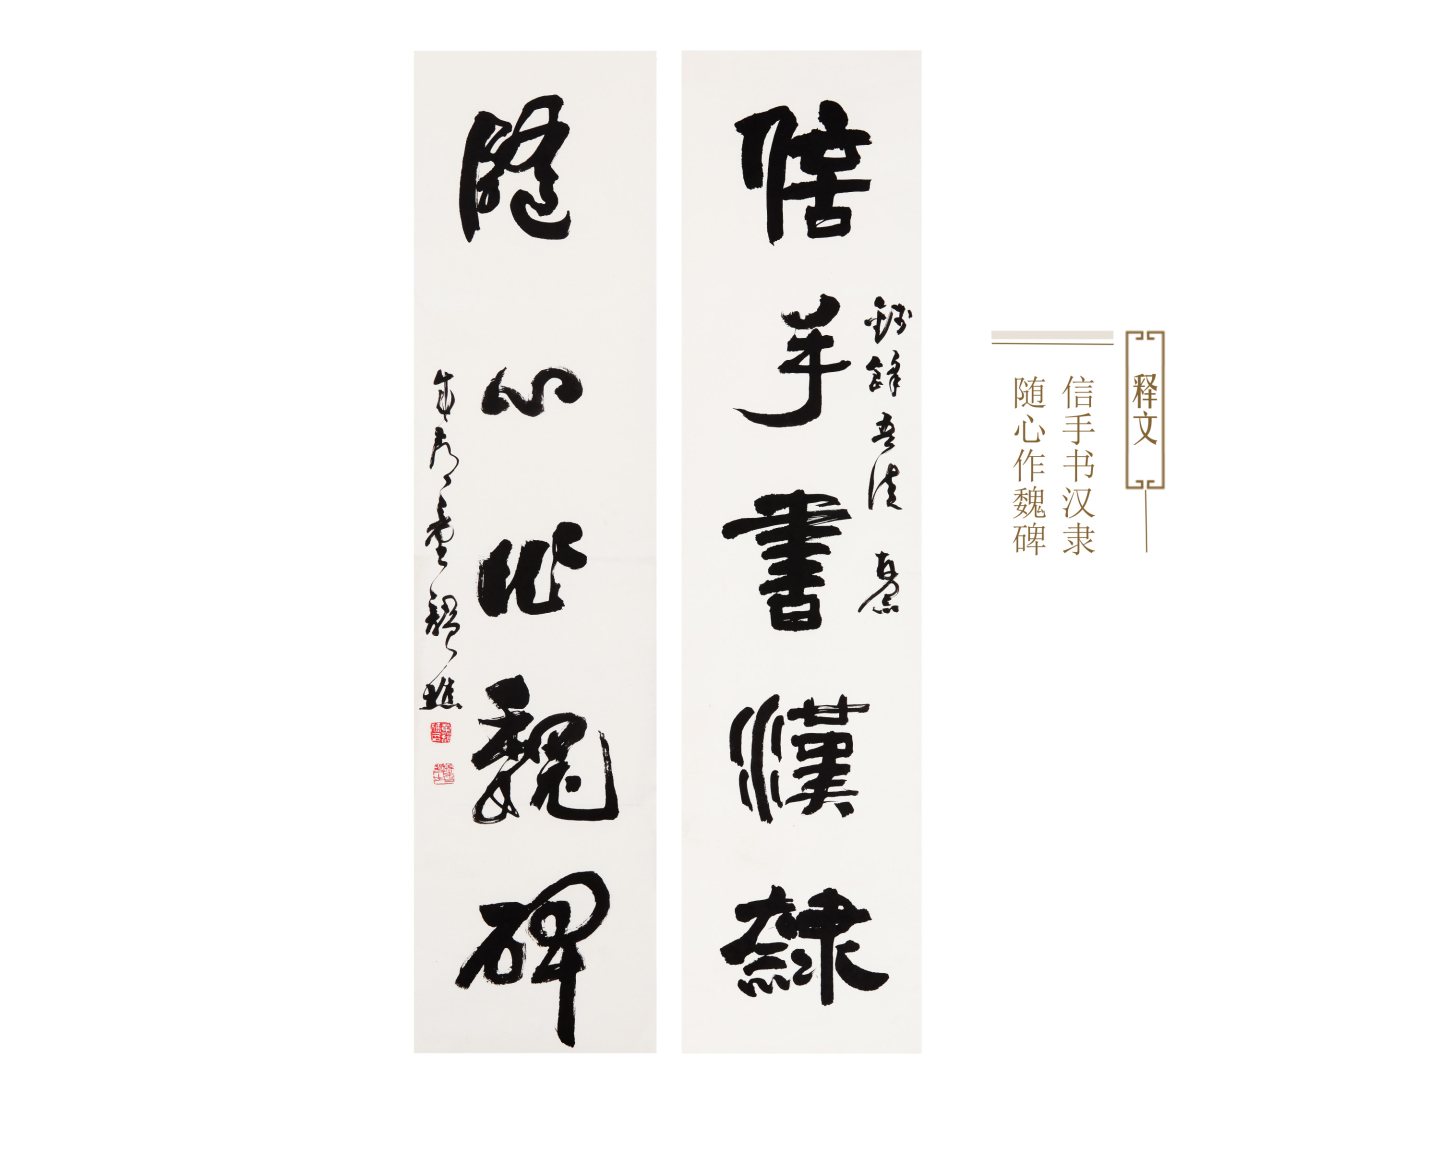 信手書漢隸
随心作魏碑
释文
信手书汉隶
随心作魏碑